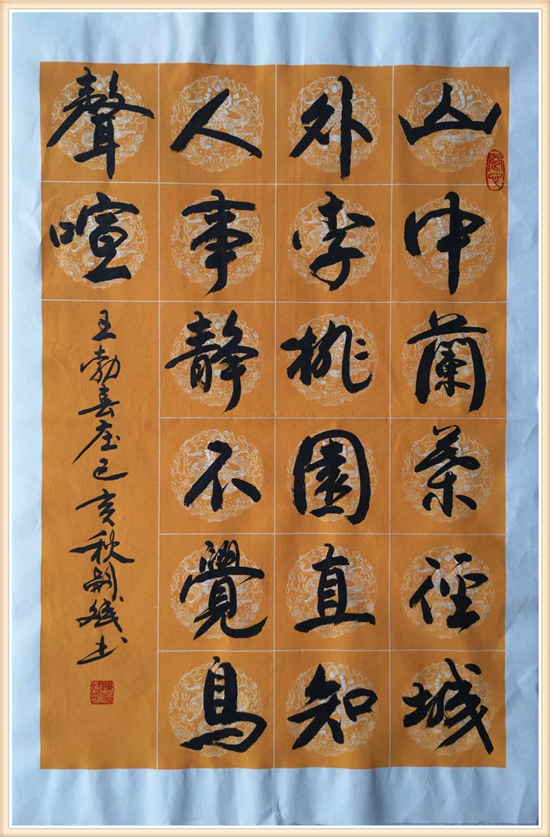 山中蘭葉徑城
外李桃園直知
人事靜不覺鳥
聲喧
王勃春庄己亥秋斌书